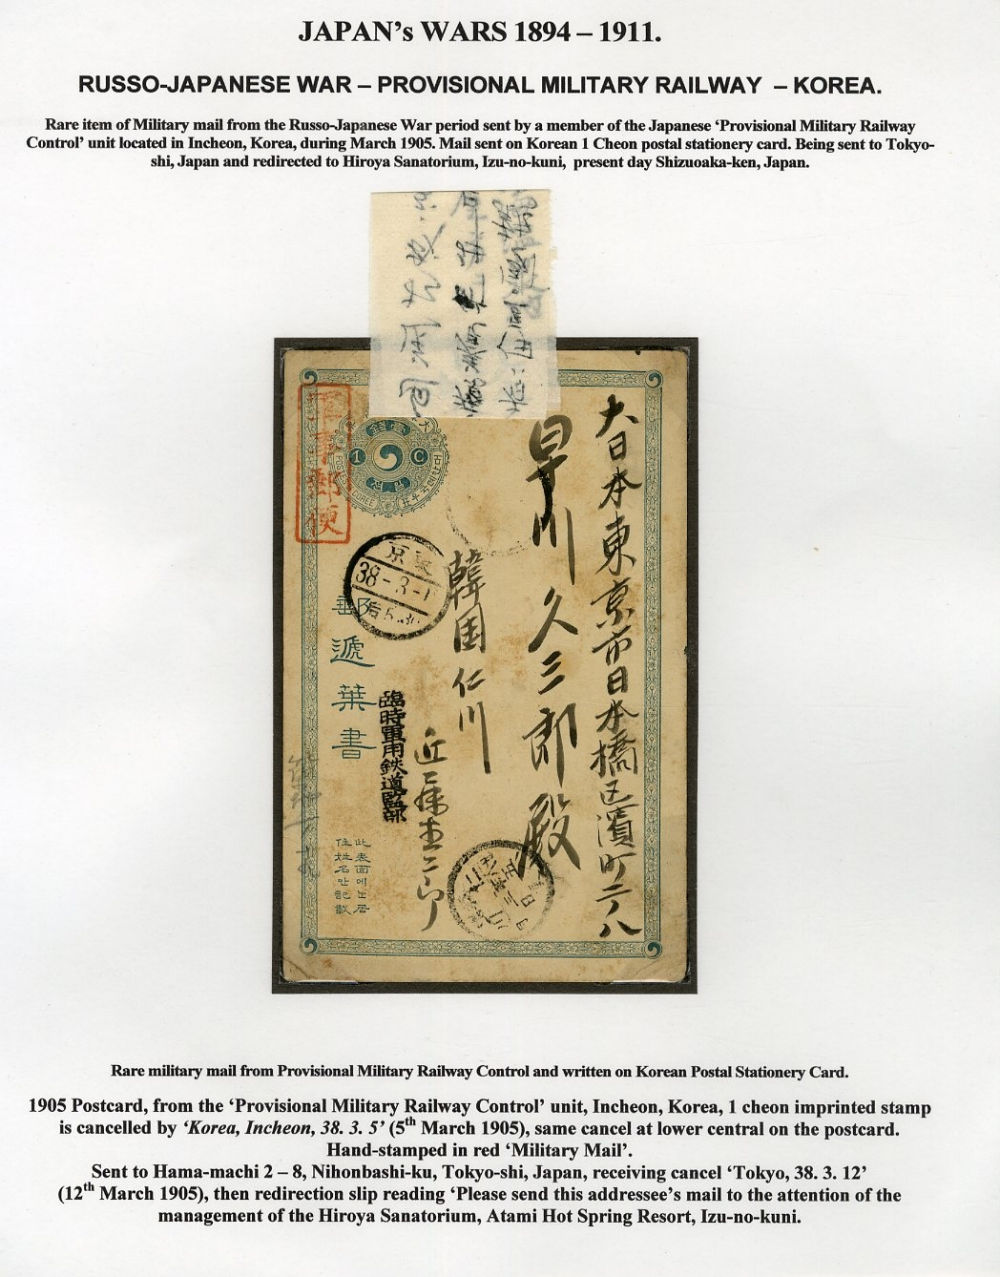 JAPAN's WARS 1894 – 1911.
RUSSO-JAPANESE WAR – PROVISIONAL MILITARY RAILWAY – KOREA.
Rare item of Military mail from the Russo-Japanese War period sent by a member of the Japanese ‘Provisional Military Railway
Control’ unit located in Incheon, Korea, during March 1905. Mail sent on Korean 1 Cheon postal stationery card. Being sent to Tokyo-
shi, Japan and redirected to Hiroya Sanatorium, Izu-no-kuni, present day Shizuoaka-ken, Japan.
大日本東京市日本橋区濱町二ノ八
早川久三郎殿
韓国仁川
臨時軍用鉄道監部
軍事郵便
1 C
東京
38-3-1
郵遞葉書
此表面에と居
住姓名만記載
Rare military mail from Provisional Military Railway Control and written on Korean Postal Stationery Card.
1905 Postcard, from the ‘Provisional Military Railway Control’ unit, Incheon, Korea, 1 cheon imprinted stamp
is cancelled by ‘Korea, Incheon, 38. 3. 5’ (5th March 1905), same cancel at lower central on the postcard.
Hand-stamped in red ‘Military Mail’.
Sent to Hama-machi 2 – 8, Nihonbashi-ku, Tokyo-shi, Japan, receiving cancel ‘Tokyo, 38. 3. 12’
(12th March 1905), then redirection slip reading ‘Please send this addressee’s mail to the attention of the
management of the Hiroya Sanatorium, Atami Hot Spring Resort, Izu-no-kuni.